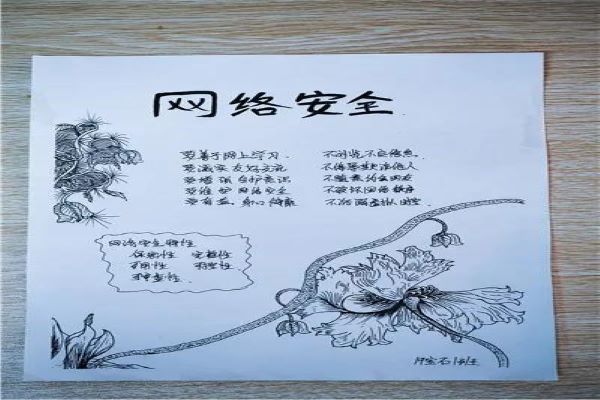 网络安全
要善于网上学习 不浏览不良信息
要诚实友好交流 不侮辱欺诈他人
要增强自护意识 不随意约会网友
要维护网络安全 不破坏网络秩序
要有益身心健康 不沉溺虚拟时空
网络安全特性
保密性 完整性
可用性 可控性
可审查性